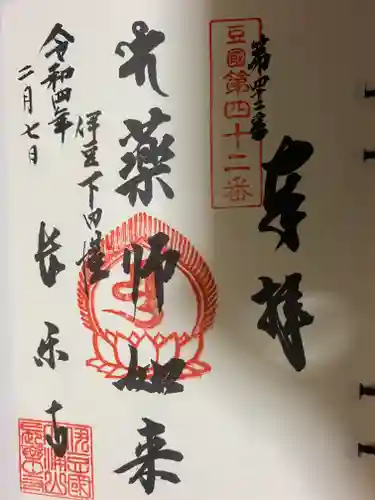 奉拝
第四十二番
豆國第四十二番
薬師如来
伊豆下田港
長楽寺
令和四年
二月七日